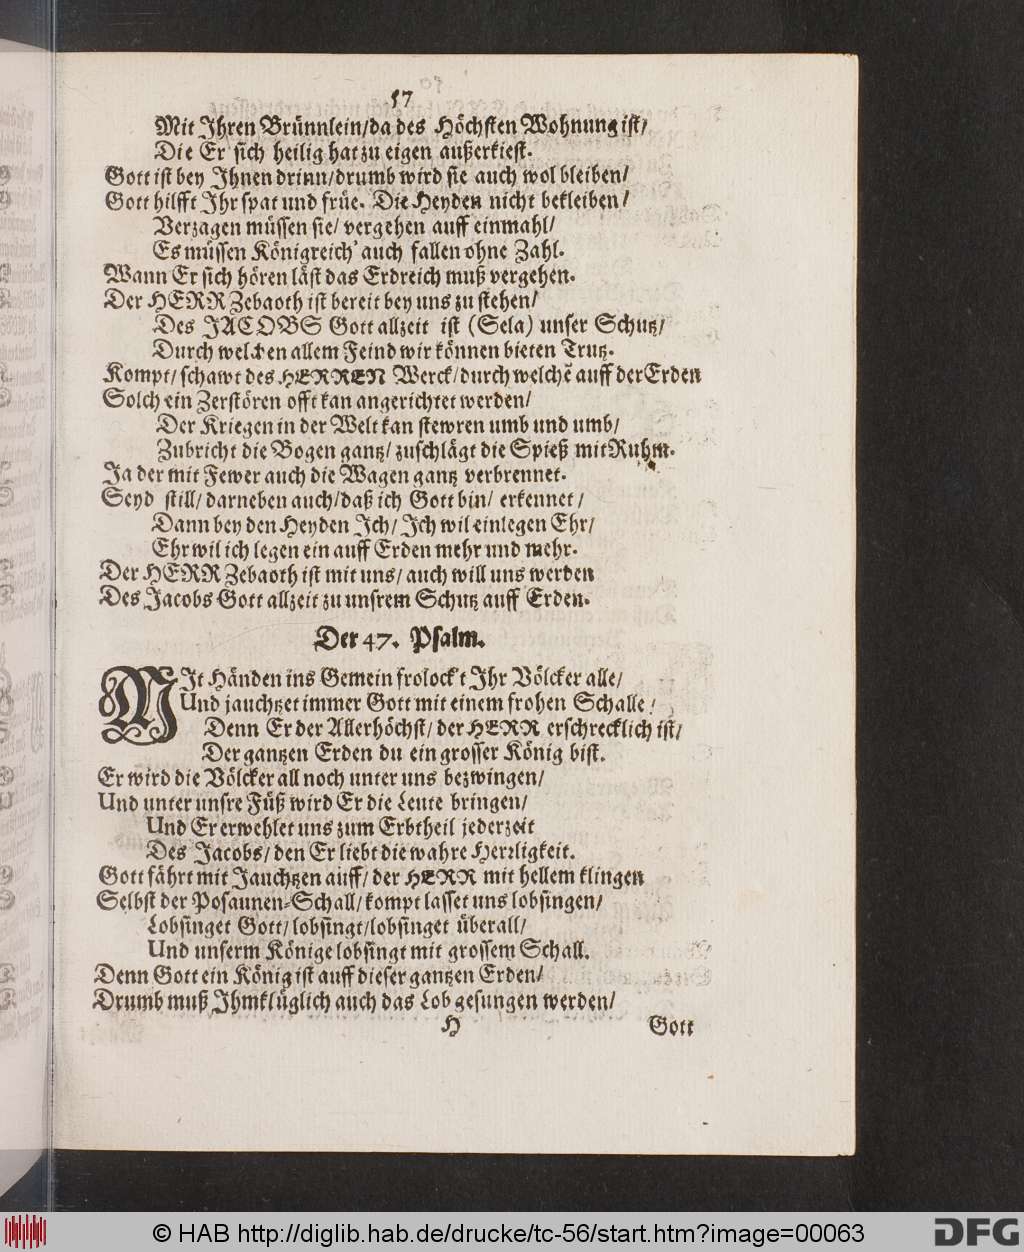 57
Mit Ihren Brünnlein/da des Höchsten Wohnung ist/
Die Er sich heilig hat zu eigen außerkiest.
Gott ist bey Ihnen drinn/drumb wird sie auch wol bleiben/
Gott hilfft Ihr spat und früe. Die Heyden nicht bekleiben/
Verzagen müssen sie/ vergehen auff einmahl/
Es müssen Königreich' auch fallen ohne Zahl.
Wann Er sich hören läst das Erdreich muß vergehen.
Der HERR Zebaoth ist bereit bey uns zu stehen/
Des JACOBS Gott allzeit ist (Sela) unser Schutz/
Durch welchen allem Feind wir können bieten Trutz.
Kompt/ schawt des HERREN Werck/durch welchẽ auff der Erden
Solch ein Zerstören offt kan angerichtet werden/
Der Kriegen in der Welt kan stewren umb und umb/
Zubricht die Bogen gantz/ zuschlägt die Spieß mit Ruhm.
Ja der mit Fewer auch die Wagen gantz verbrennet.
Seyd still/ darneben auch/daß ich Gott bin/ erkennet/
Dann bey den Heyden Ich/ Ich wil einlegen Ehr/
Ehr wil ich legen ein auff Erden mehr und mehr.
Der HERR Zebaoth ist mit uns/ auch will uns werden
Des Jacobs Gott allzeit zu unsrem Schutz auff Erden.
Der 47. Psalm.
MIt Händen ins Gemein frolock't Ihr Völcker alle/
Und jauchtzet immer Gott mit einem frohen Schalle/
Denn Er der Allerhöchst/ der HERR erschrecklich ist/
Der gantzen Erden du ein grosser König bist.
Er wird die Völcker all noch unter uns bezwingen/
Und unter unsre Füß wird Er die Leute bringen/
Und Er erwehlet uns zum Erbtheil jederzeit
Des Jacobs/ den Er liebt die wahre Herrligkeit.
Gott fährt mit Jauchtzen auff/ der HERR mit hellem klingen
Selbst der Posaunen-Schall/ kompt lasset uns lobsingen/
Lobsinget Gott/ lobsingt/lobsinget überall/
Und unserm Könige lobsingt mit grossem Schall.
Denn Gott ein König ist auff dieser gantzen Erden/
Drumb muß Ihm klüglich auch das Lob gesungen werden/
H Gott
© HAB http://diglib.hab.de/drucke/tc-56/start.htm?image=00063
DFG